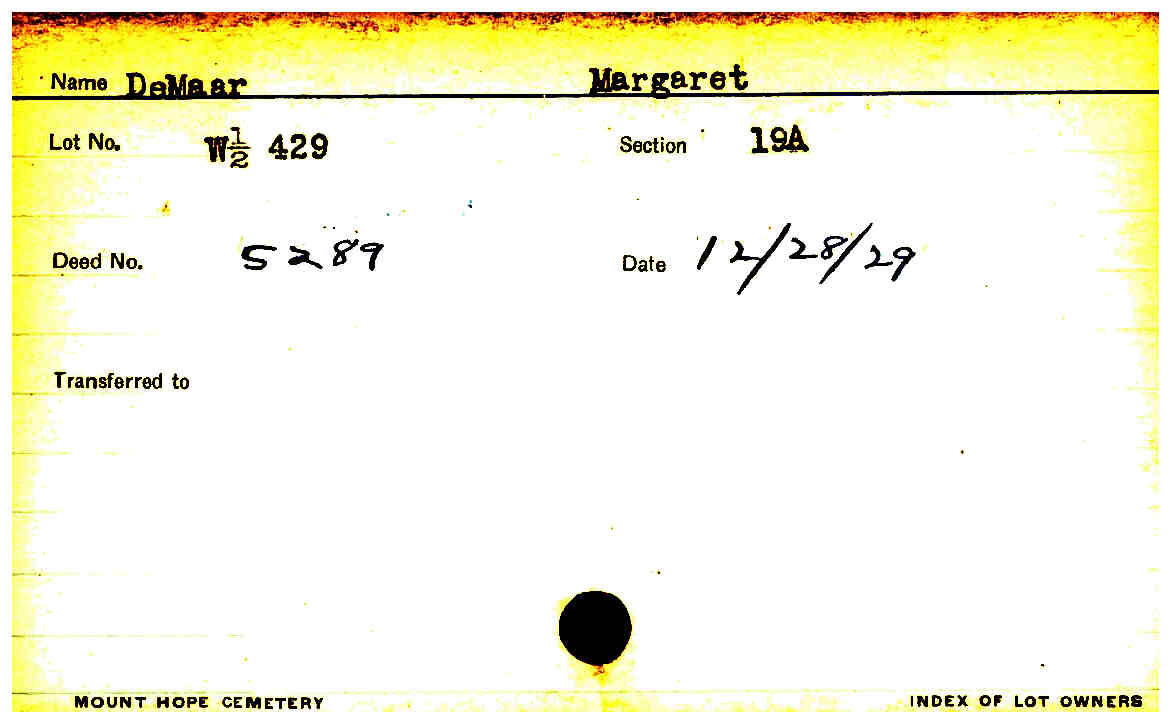 Name DeMaar Margaret
Lot No. W½ 429 Section 19A
Deed No. 5289 Date 12/28/29
Transferred to
MOUNT HOPE CEMETERY INDEX OF LOT OWNERS